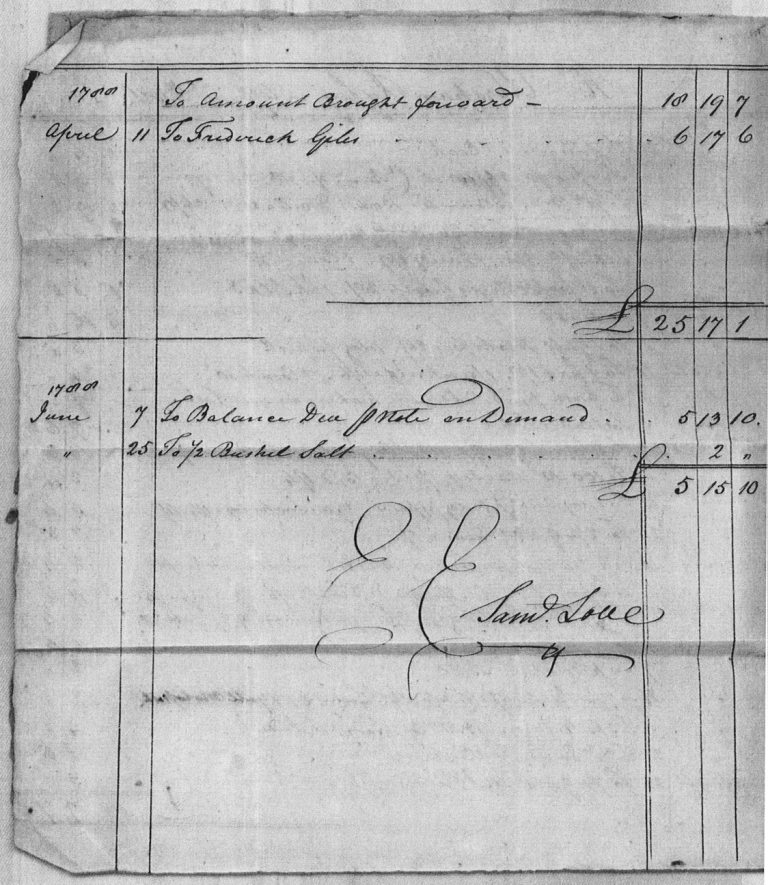 1788 To Amount Brought forward - 18 19 7
April 11 To Frederick Giles 6 17 6
£ 25 17 1
1788
June 7 To Balance Due p Note on Demand 5 13 10.
" 25 To 1/2 Bushel Salt 2 "
£ 5 15 10
E E
Samd. Love